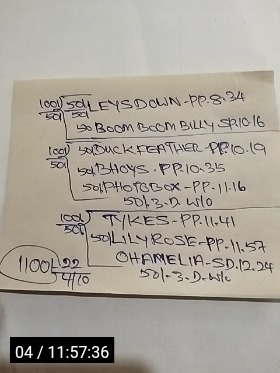 100/ 50/ LEYSDOWN-PP.8.34
50/ 50/
50 BOOM BOOM BILLY SP.10.16
100/ 50/ DUCKFEATHER-PP.10.19
50/ 50/ BHOYS-PP.10.35
50/ PHOTOBOX-PP-11.16
50/-3-D w/c
100/ TYKES-PP.11.41
50/ 50/ LILYROSE-PP.11.57
OHAMELIA-SD.12.24
50/-3-D-w/c
1100/ 22
4/10
04 / 11:57:36